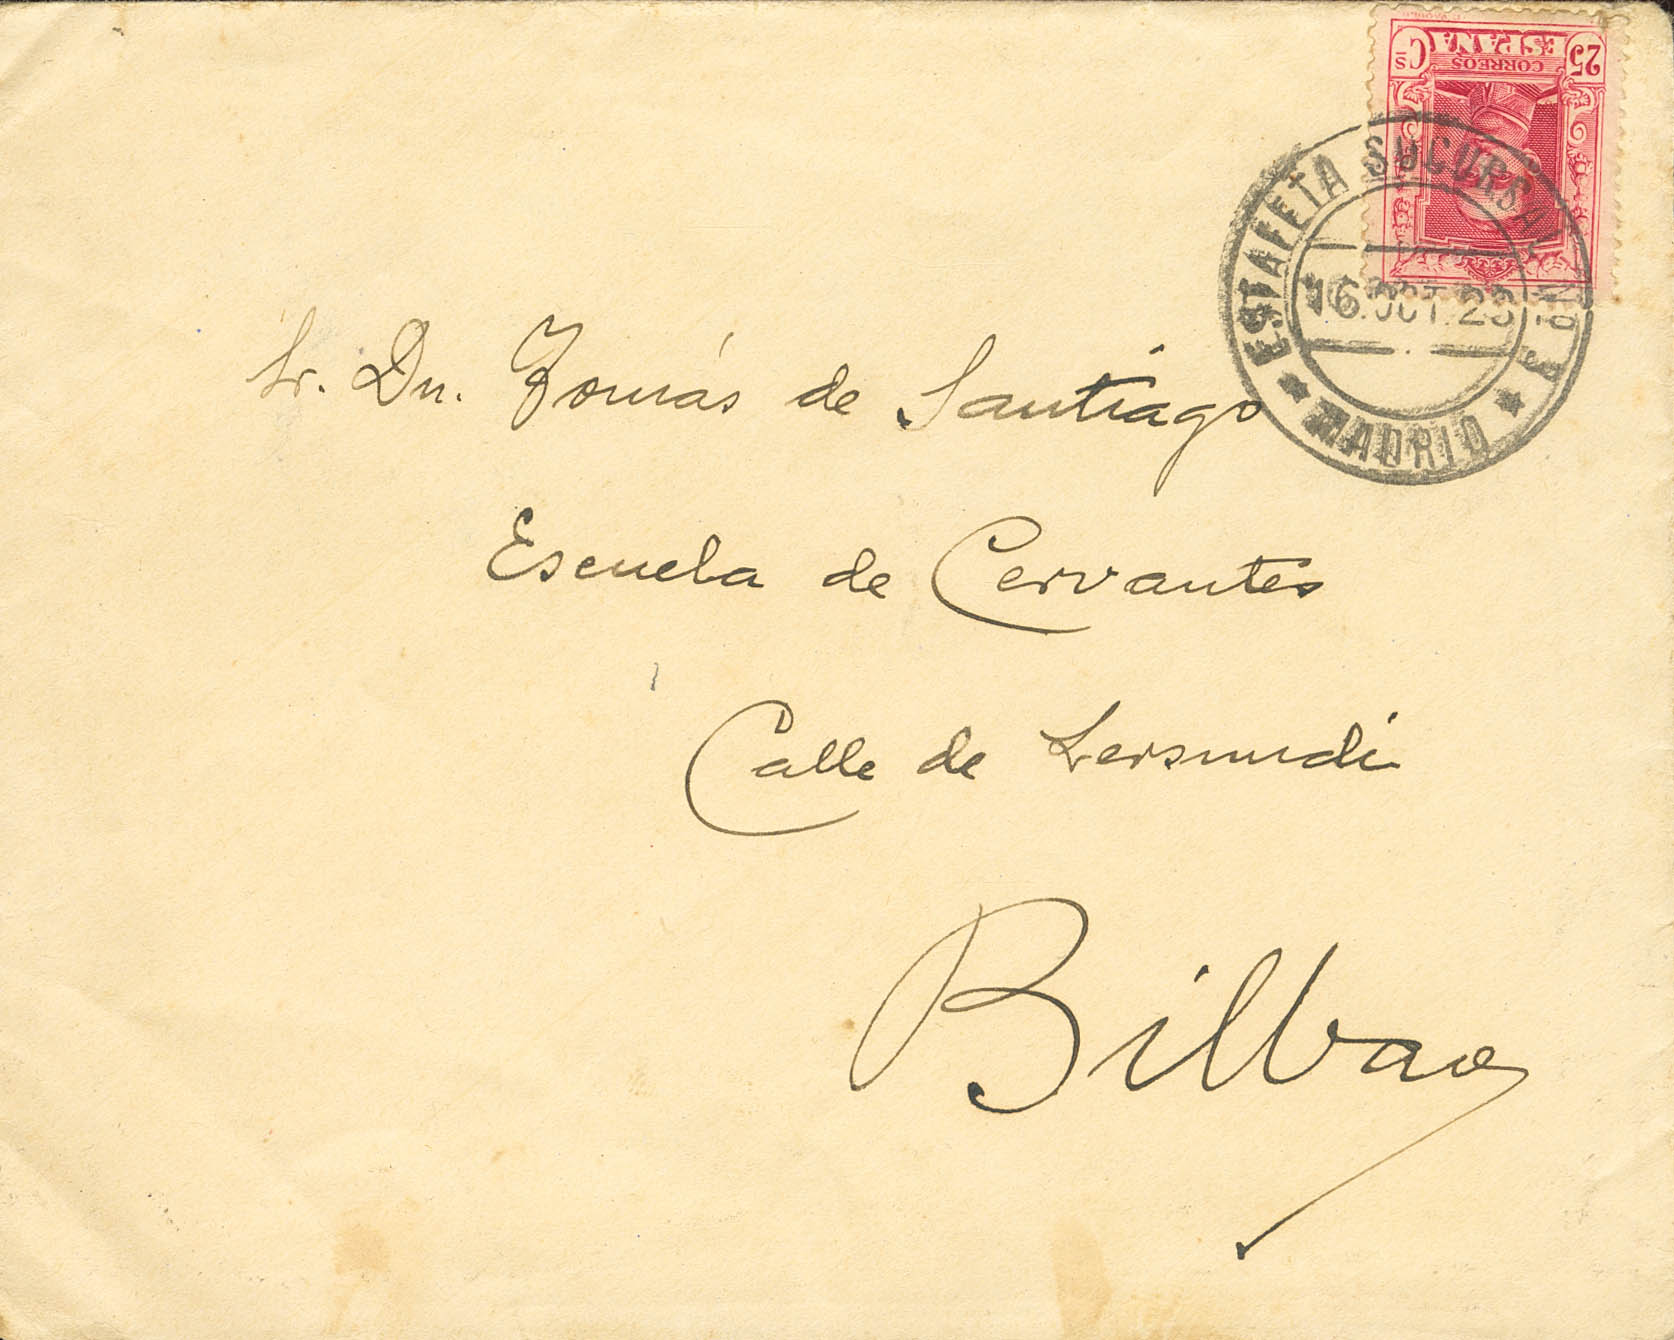 25 Cs
ESPAÑA
CORREOS
ESTAFETA SUCURSAL Nº 3
16 OCT. 28
★ MADRID ★
Sr. Dn. Tomás de Santiago
Escuela de Cervantes
Calle de Lersundi
Bilbao